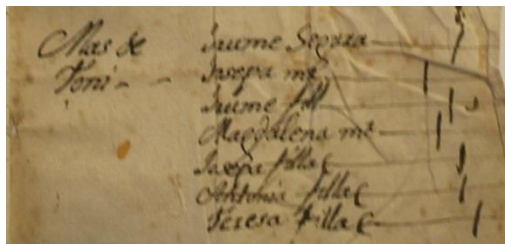 Mas de Jaume Segura
Toni - - Josepa mr
Jaume fill
Magdalena mr
Josepa filla
Antonia filla
Teresa filla